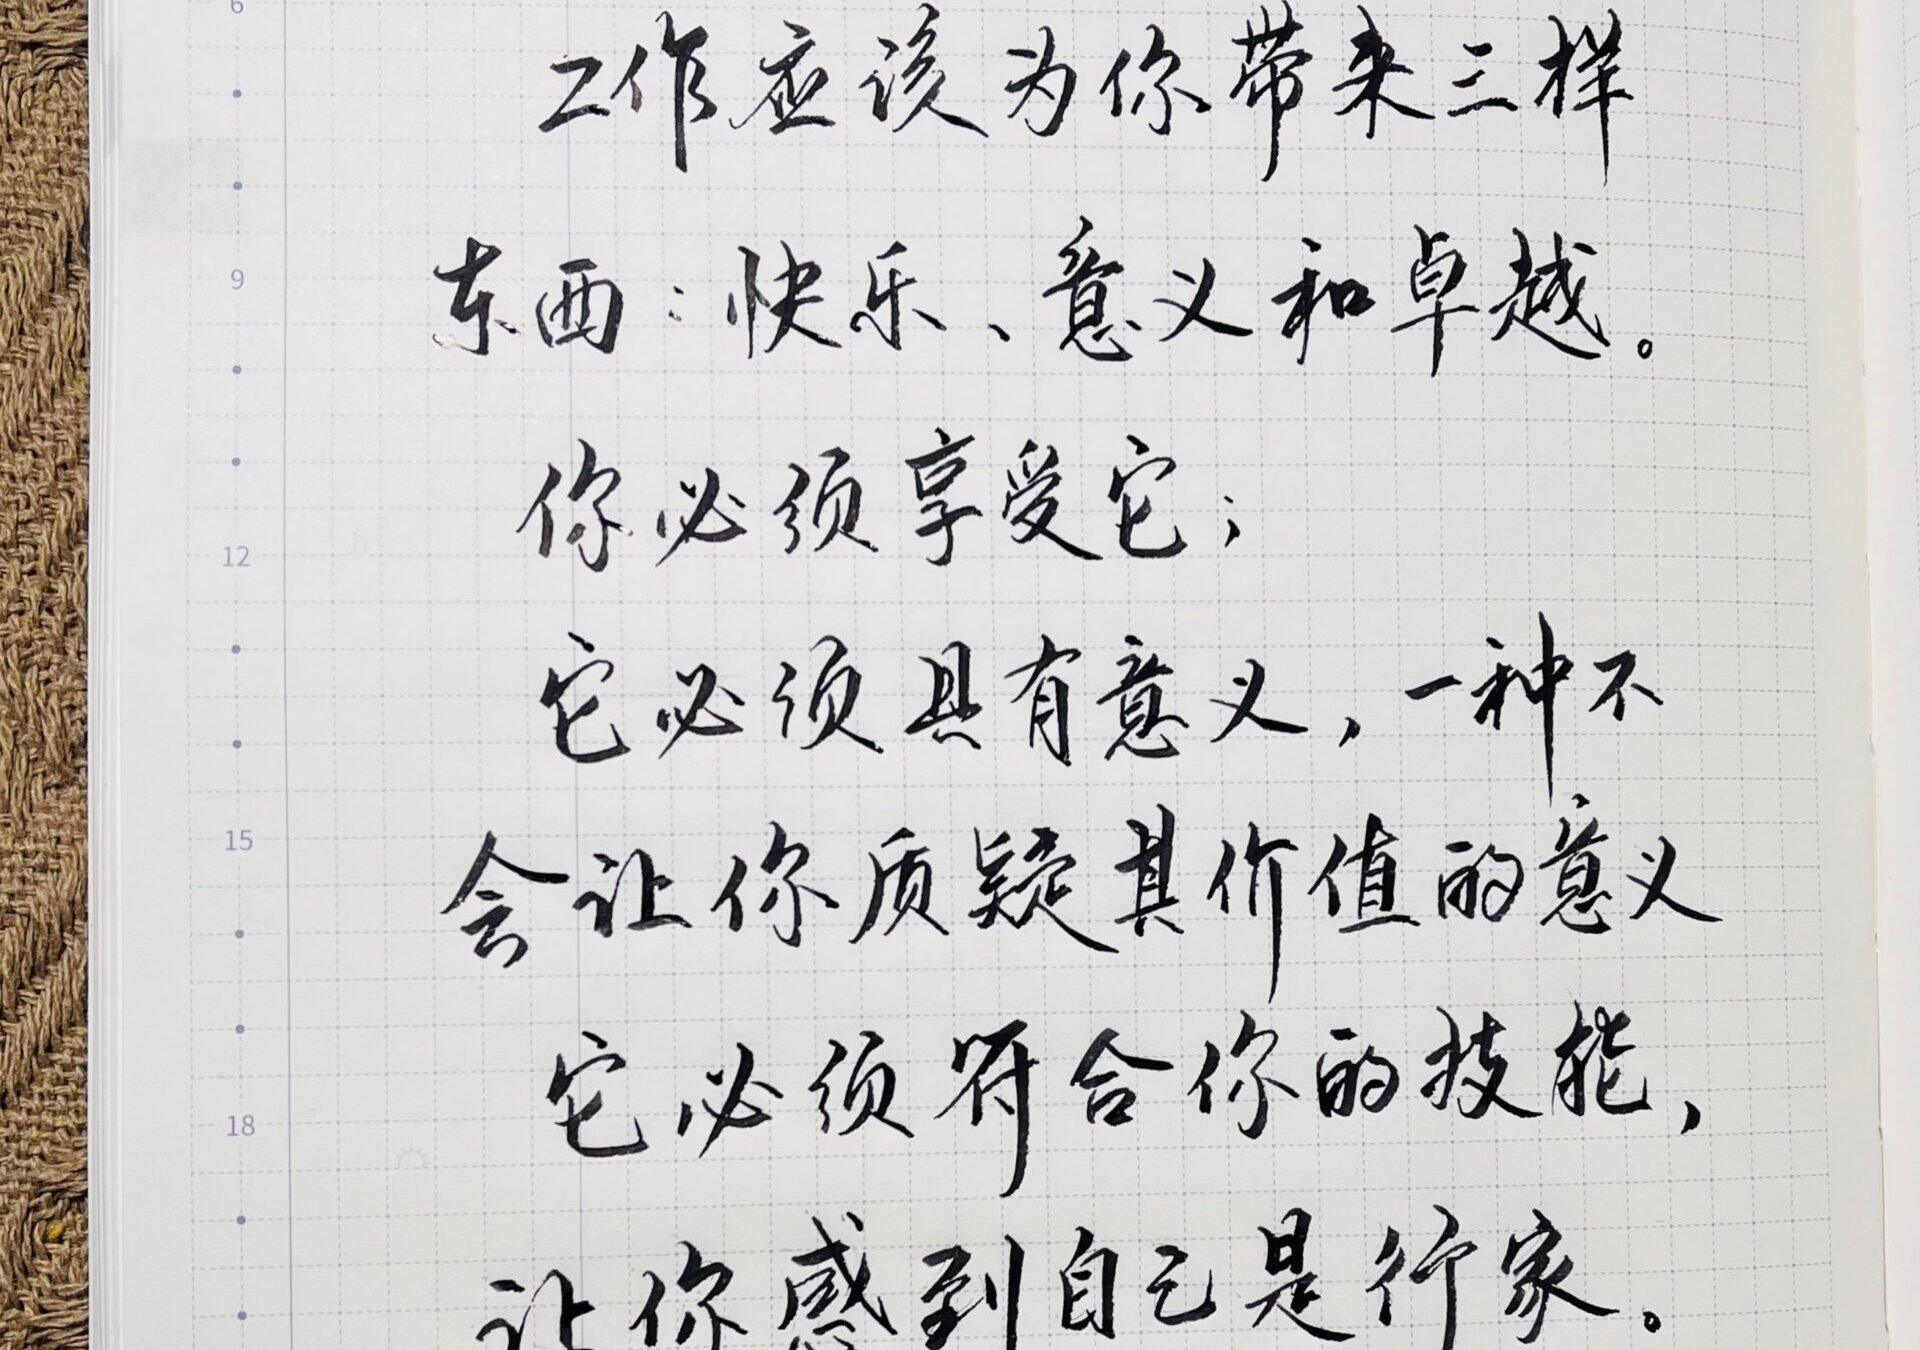 6
工作应该为你带来三样
9
东西:快乐、意义和卓越。
你必须享受它;
12
它必须具有意义,一种不
15
会让你质疑其价值的意义
它必须符合你的技能,
18
让你感到自己是行家。